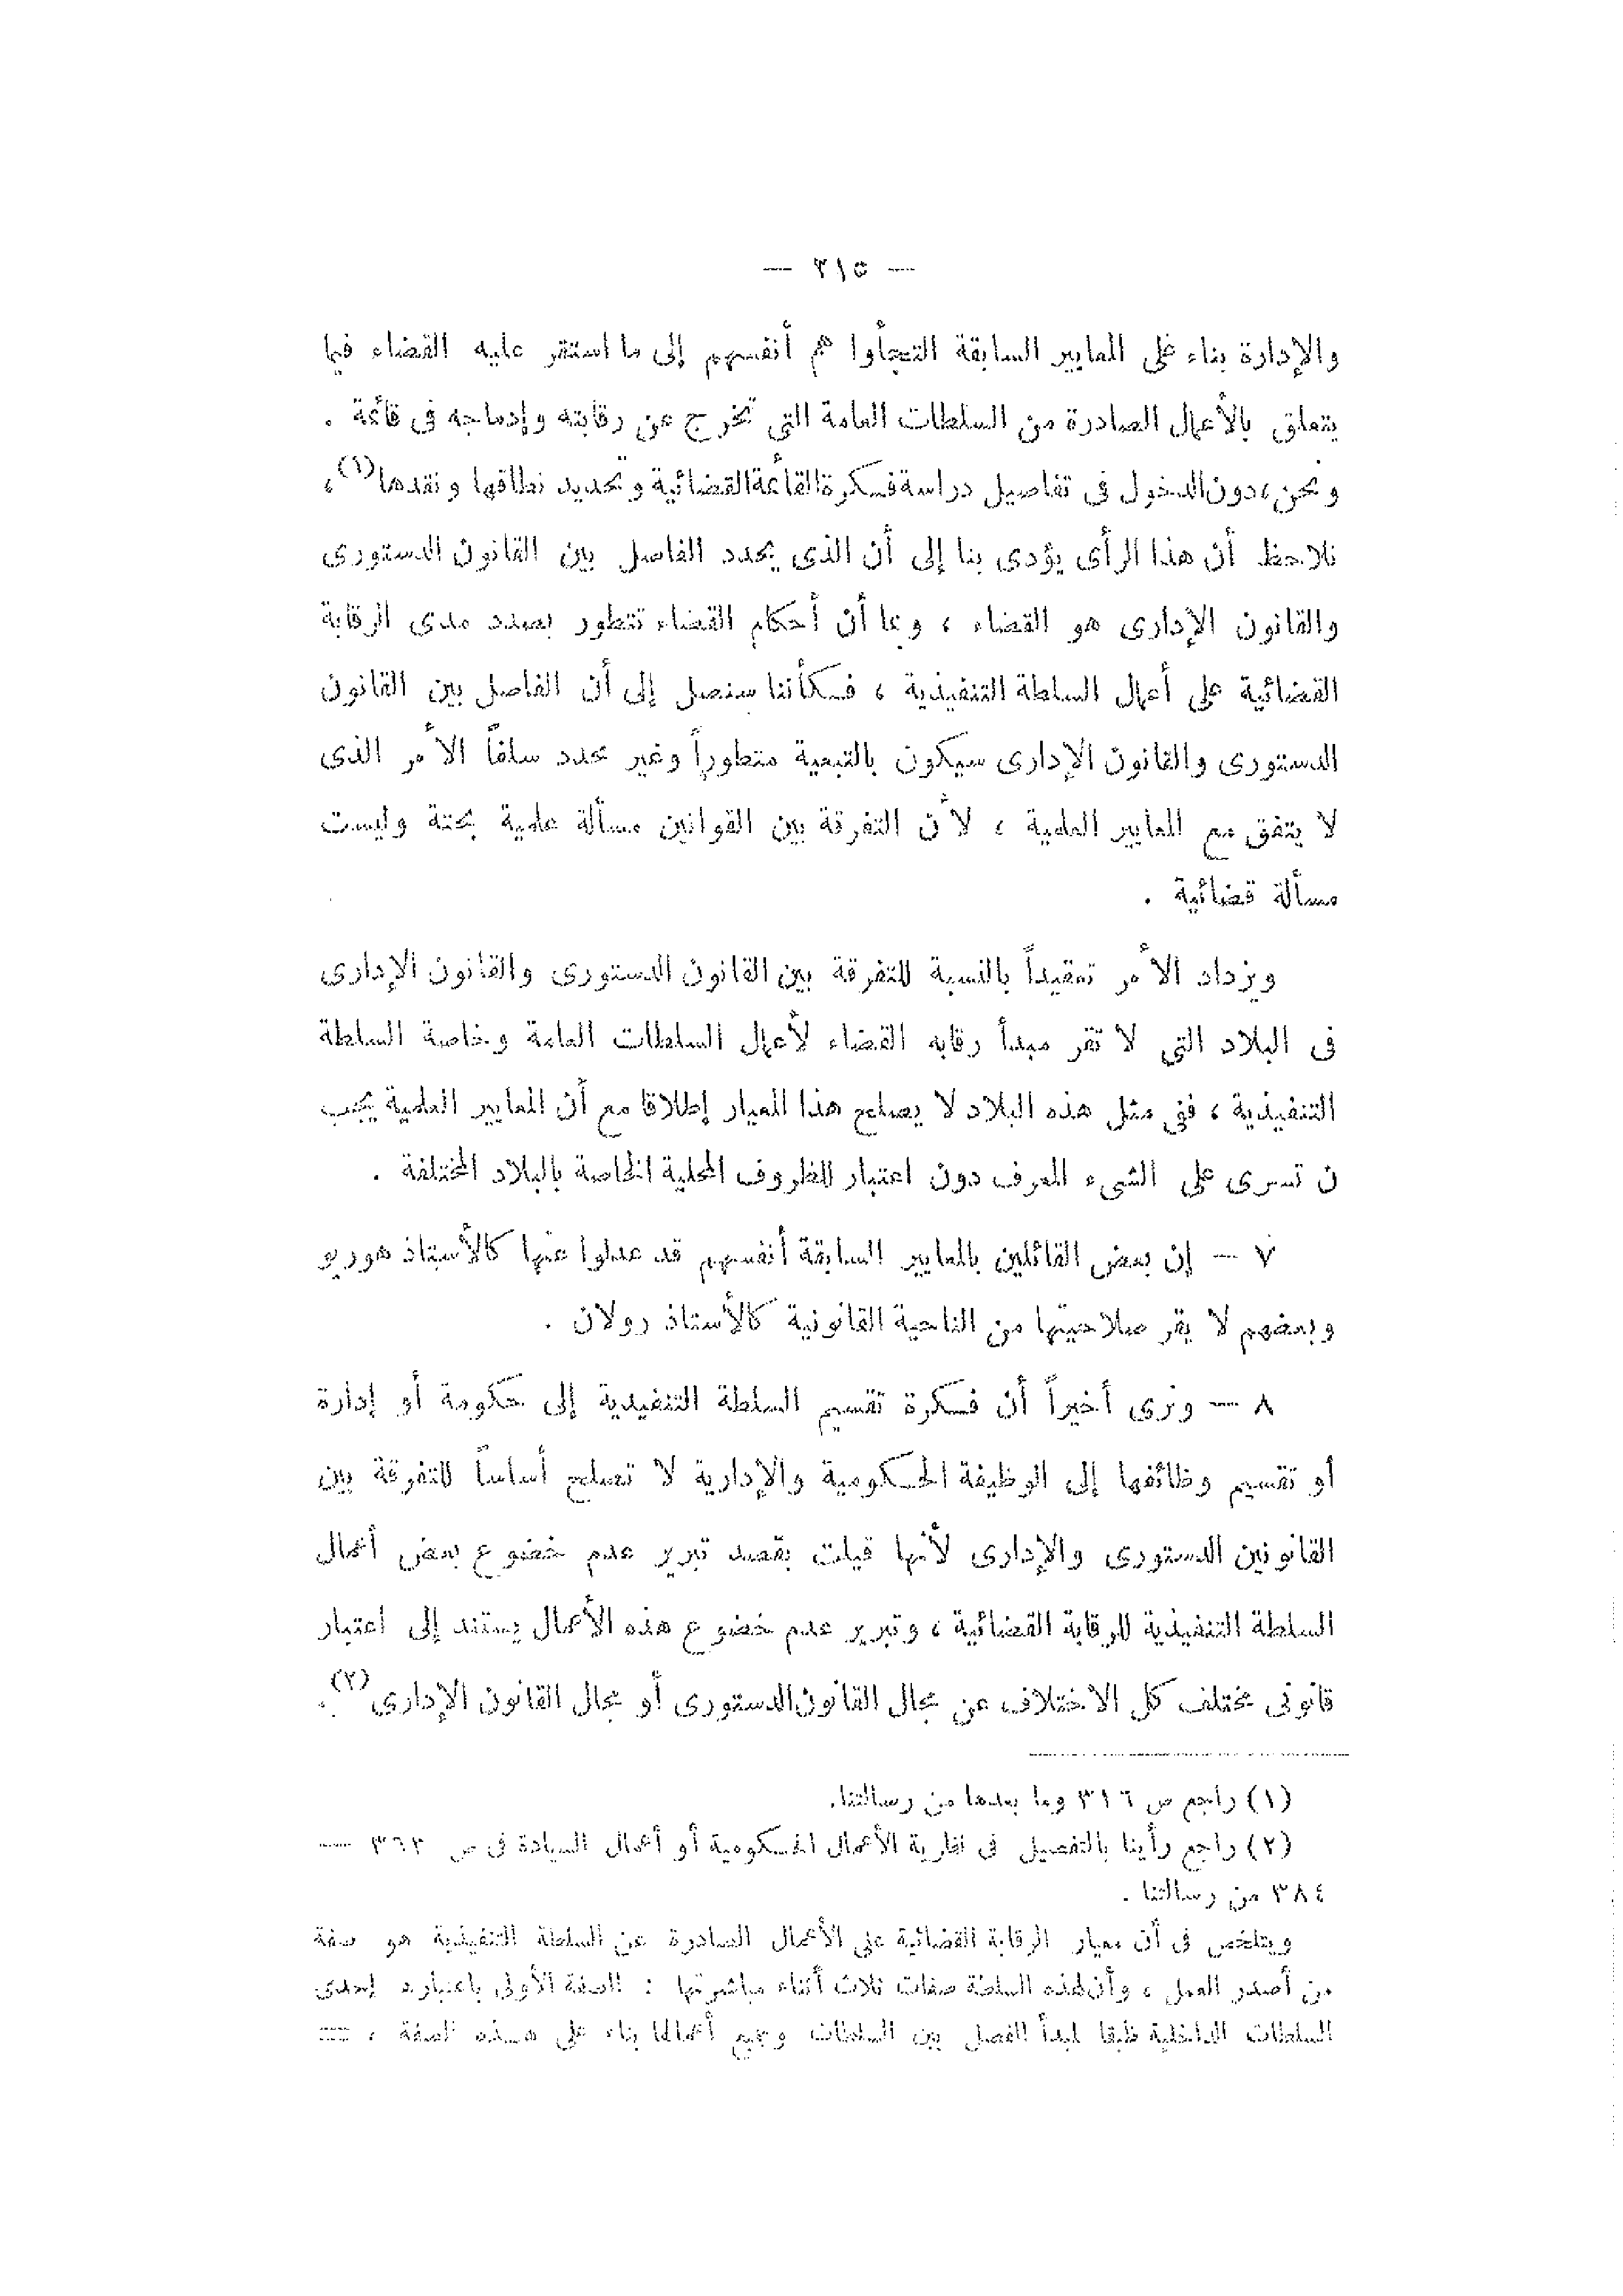 — ٣١٥ —
والإدارة بناء على المعايير السابقة التجأوا هم أنفسهم إلى ما استقر عليه القضاء فيما
يتعلق بالأعمال الصادرة من السلطات العامة التي تخرج عن رقابته وإدماجه فى قائمة .
ونحن، دون الدخول فى تفاصيل دراسة فكرة القائمة القضائية وتحديد نطاقها ونقدها (١)،
نلاحظ أن هذا الرأى يؤدى بنا إلى أن الذى يحدد الفاصل بين القانون الدستورى
والقانون الإدارى هو القضاء ، وبما أن أحكام القضاء تتطور بصدد مدى الرقابة
القضائية على أعمال السلطة التنفيذية ، فكأننا سنصل إلى أن الفاصل بين القانون
الدستورى والقانون الإدارى سيكون بالتبعية متطوراً وغير محدد سلفاً الأمر الذى
لا يتفق مع المعايير العلمية ، لأن التفرقة بين القوانين مسألة علمية بحتة وليست
مسألة قضائية .
ويزداد الأمر تعقيداً بالنسبة للتفرقة بين القانون الدستورى والقانون الإدارى
فى البلاد التي لا تقر مبدأ رقابه القضاء لأعمال السلطات العامة وخاصة السلطة
التنفيذية ، ففى مثل هذه البلاد لا يصلح هذا المعيار إطلاقا مع أن المعايير العلمية يجب
ن تسرى على الشىء المعرف دون اعتبار للظروف المحلية الخاصة بالبلاد المختلفة .
٧ — إن بعض القائلين بالمعايير السابقة أنفسهم قد عدلوا عنها كالأستاذ هوريو
وبعضهم لا يقر صلاحيتها من الناحية القانونية كالأستاذ رولان .
٨ — ونرى أخيراً أن فكرة تقسيم السلطة التنفيدية إلى حكومة أو إدارة
أو تقسيم وظائفها إلى الوظيفة الحكومية والإدارية لا تصلح أساساً للتفرقة بين
القانونين الدستورى والإدارى لأنها قيلت بقصد تبرير عدم خضوع بعض أعمال
السلطة التنفيذية للرقابة القضائية ، وتبرير عدم خضوع هذه الأعمال يستند إلى اعتبار
قانونى مختلف كل الاختلاف عن مجال القانون الدستورى أو مجال القانون الإدارى (٢).
(١) راجع ص ٣١٦ وما بعدها من رسالتنا.
(٢) راجع رأينا بالتفصيل فى نظرية الأعمال الحكومية أو أعمال السيادة فى ص ٣٦٣ —
٣٨٤ من رسالتنا .
ويتلخص فى أن معيار الرقابة القضائية على الأعمال الصادرة عن السلطة التنفيذية هو صفة
من أصدر العمل ، وأن لهذه السلطة صفات ثلاث أثناء مباشرتها : الصفة الأولى باعتباره إحدى
السلطات الداخلية طبقا لمبدأ الفصل بين السلطات وجميع أعمالها بناء على هذه الصفة ، =